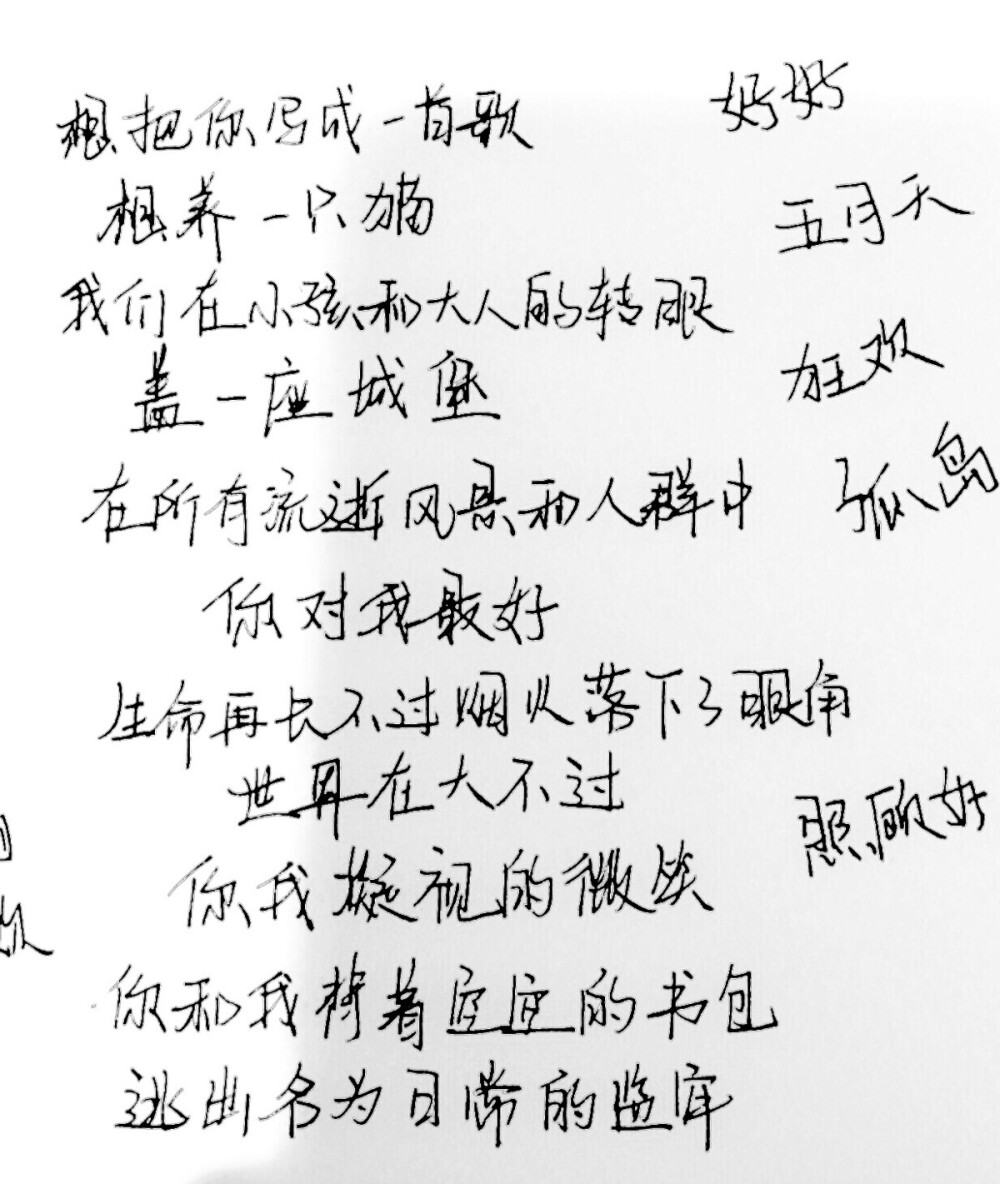 想把你写成一首歌
好好
想养一只猫
五月天
我们在小孩和大人的转眼
狂欢
盖一座城堡
孤岛
在所有流逝风景和人群中
你对我最好
生命再长不过烟火落下了眼角
世界在大不过
照顾好
你我凝视的微笑
你和我背着空空的书包
逃出名为日常的监牢